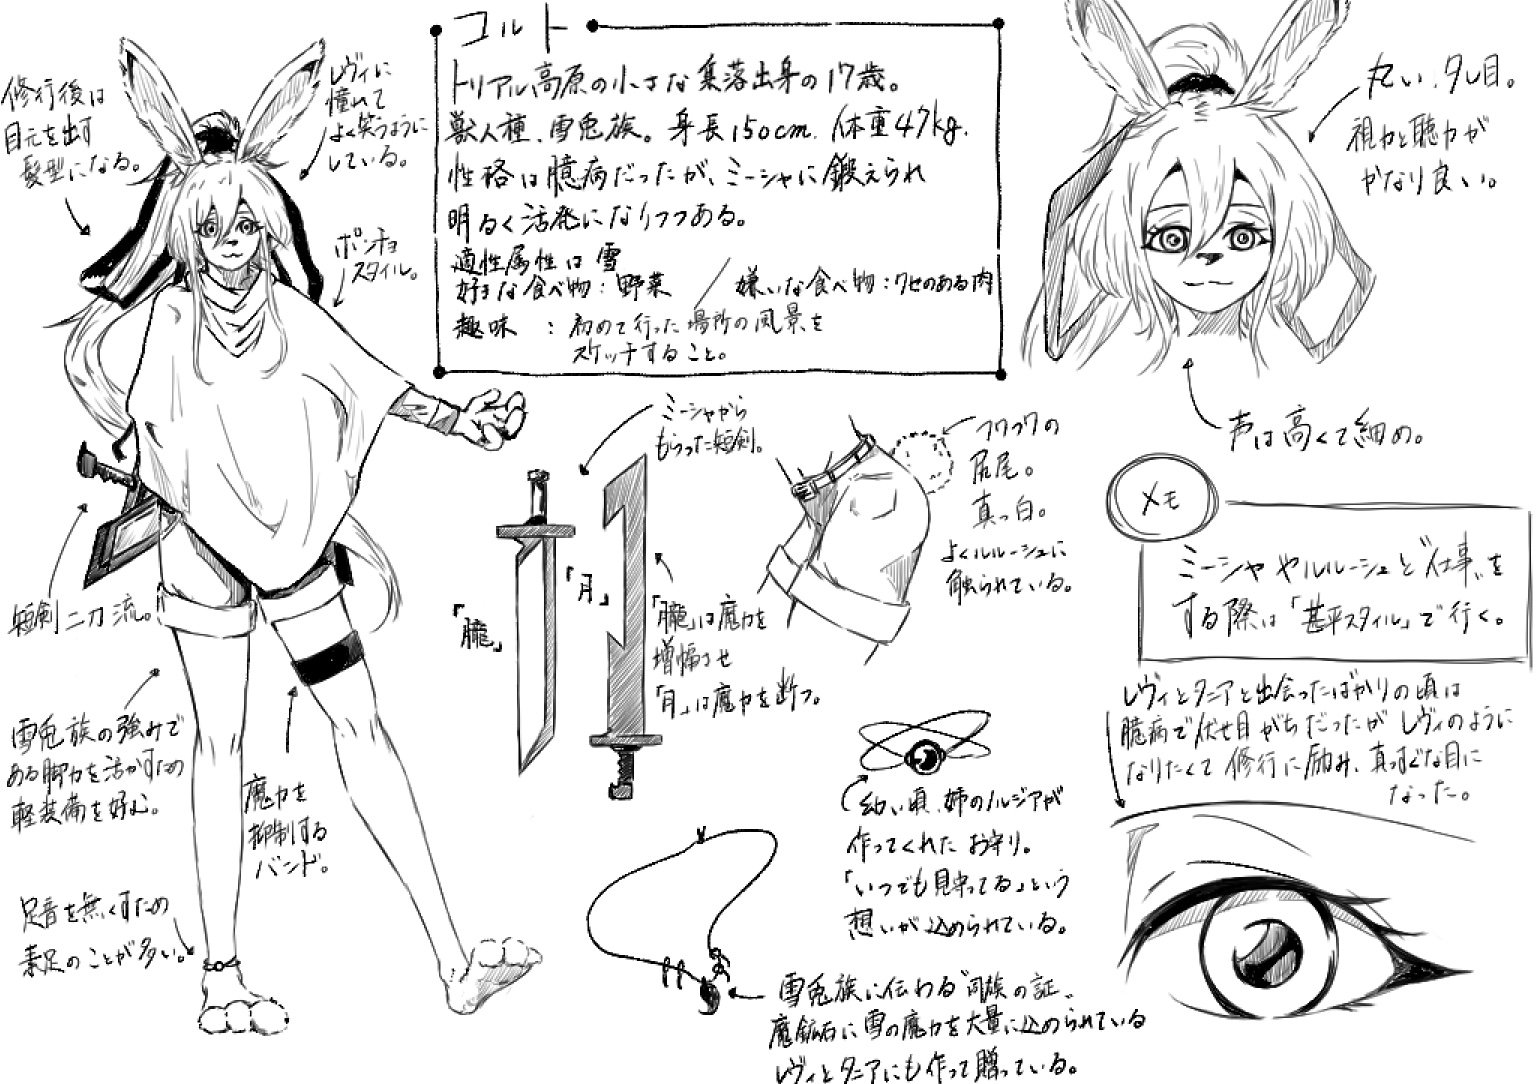 コルト
トリアル高原の小さな集落出身の17歳。
獣人種、雪兎族。身長150cm、体重47kg.
性格は臆病だったが、ミーシャに鍛えられ
明るく活発になりつつある。
適性属性は雪
好きな食べ物：野菜 / 嫌いな食べ物：クセのある肉
趣味 ：初めて行った場所の風景を
スケッチすること。
修行後は
目元を出す
髪型になる。
レヴィに
憧れて
よく笑うように
している。
ポンチョ
スタイル。
丸い、タレ目。
視力と聴力が
かなり良い。
声は高くて細め。
短剣二刀流。
ミーシャから
もらった短剣。
「朧」
「月」
「朧」は魔力を
増幅させ
「月」は魔力を断つ。
フワフワの
尻尾。
真っ白。
よくルルーシュに
触られている。
メモ
ミーシャやルルーシュと仕事を
する際は「甚平スタイル」で行く。
雪兎族の強みで
ある脚力を活かすため
軽装備を好む。
魔力を
抑制する
バンド。
足音を無くすため
素足のことが多い。
幼い頃、姉のノルジアが
作ってくれたお守り。
「いつでも見守ってる」という
想いが込められている。
雪兎族に伝わる"同族の証"
魔鉱石に雪の魔力を大量に込められている
レヴィとタニアにも作って贈っている。
レヴィとタニアと出会ったばかりの頃は
臆病で伏せ目がちだったがレヴィのように
なりたくて修行に励み、真っすぐな目に
なった。